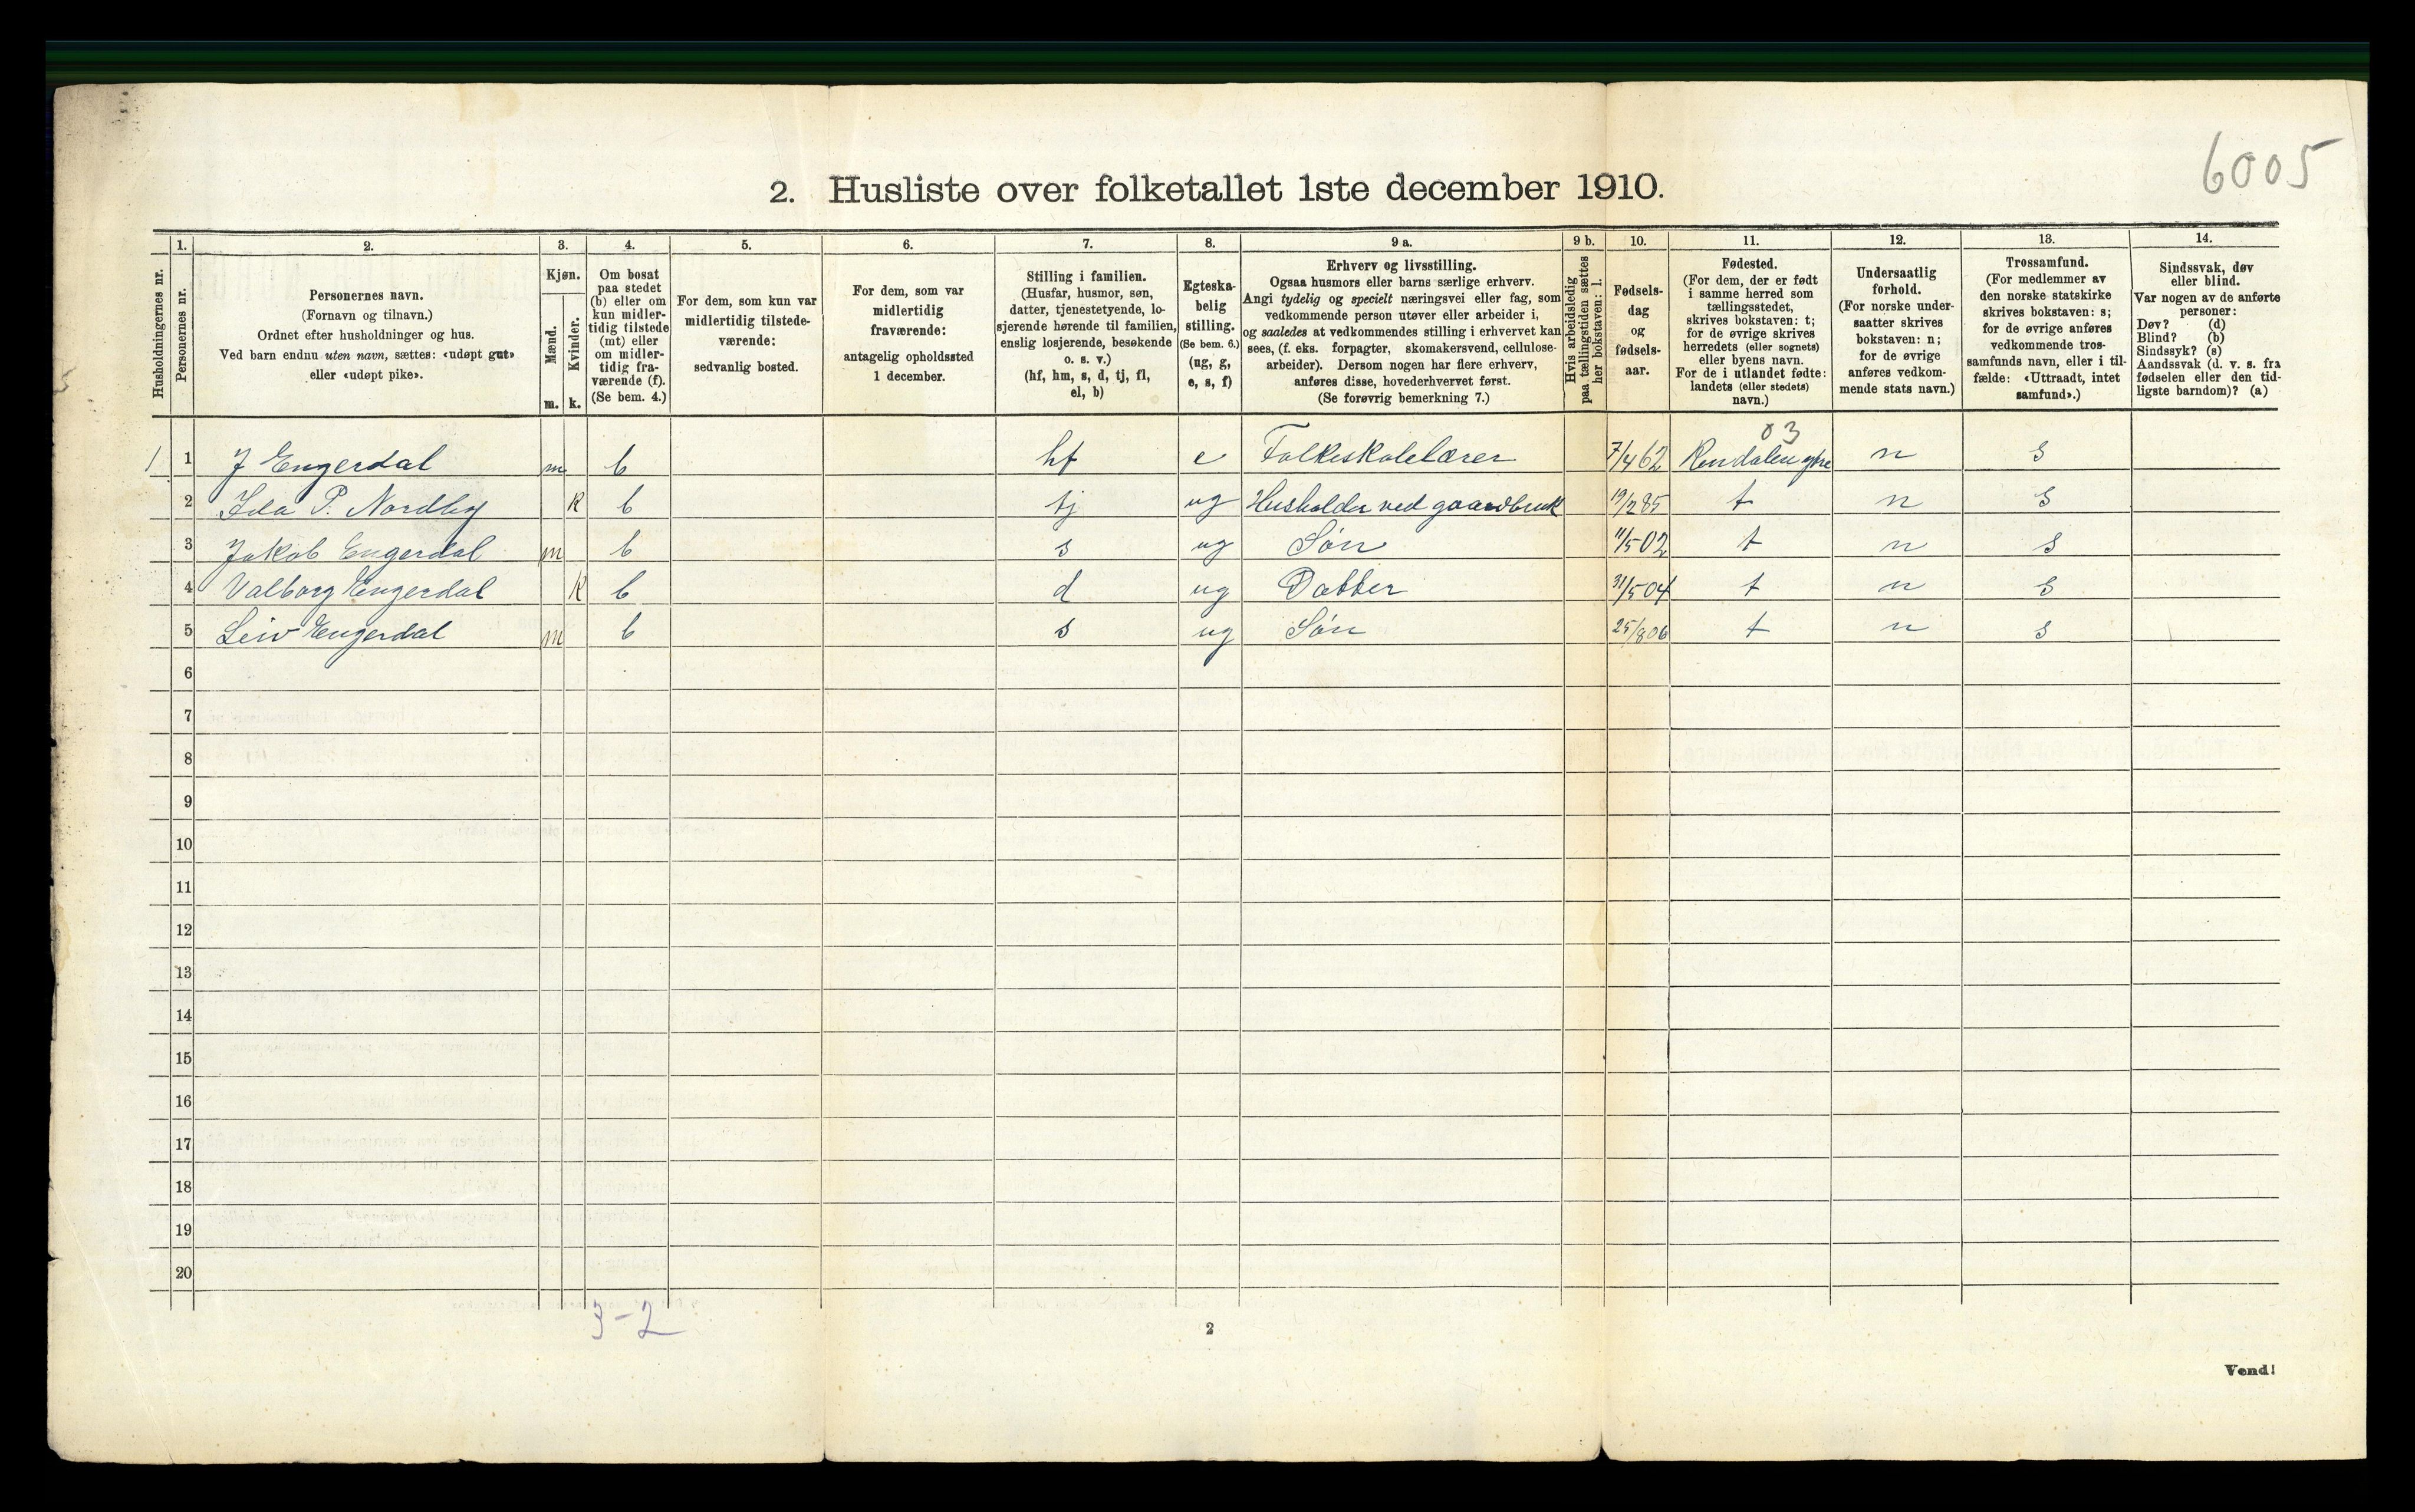 6005
2. Husliste over folketallet 1ste december 1910.
Husholdningernes nr.
1.
Personernes nr.
2.
Personernes navn.
(Fornavn og tilnavn.)
Ordnet efter husholdninger og hus.
Ved barn endnu uten navn, sættes: «udøpt gut»
eller «udøpt pike».
3.
Kjøn.
Mænd.
Kvinder.
m. k.
4.
Om bosat
paa stedet
(b) eller om
kun midler-
tidig tilstede
(mt) eller
om midler-
tidig fra-
værende (f).
(Se bem. 4.)
5.
For dem, som kun var
midlertidig tilstede-
værende:
sedvanlig bosted.
6.
For dem, som var
midlertidig
fraværende:
antagelig opholdssted
1 december.
7.
Stilling i familien.
(Husfar, husmor, søn,
datter, tjenestetyende, lo-
sjerende hørende til familien,
enslig losjerende, besøkende
o. s. v.)
(hf, hm, s, d, tj, fl,
el, b)
8.
Egteska-
belig
stilling.
(Se bem. 6.)
(ug, g,
e, s, f)
9 a.
Erhverv og livsstilling.
Ogsaa husmors eller barns særlige erhverv.
Angi tydelig og specielt næringsvei eller fag, som
vedkommende person utøver eller arbeider i,
og saaledes at vedkommendes stilling i erhvervet kan
sees, (f. eks. forpagter, skomakersvend, cellulose-
arbeider). Dersom nogen har flere erhverv,
anføres disse, hovederhvervet først.
(Se forøvrig bemerkning 7.)
9 b.
Hvis arbeidsledig
paa tællingstiden sættes
her bokstaven: l.
10.
Fødsels-
dag
og
fødsels-
aar.
11.
Fødested.
(For dem, der er født
i samme herred som
tællingsstedet,
skrives bokstaven: t;
for de øvrige skrives
herredets (eller sognets)
eller byens navn.
For de i utlandet fødte:
landets (eller stedets)
navn.)
12.
Undersaatlig
forhold.
(For norske under-
saatter skrives
bokstaven: n;
for de øvrige
anføres vedkom-
mende stats navn.)
13.
Trossamfund.
(For medlemmer av
den norske statskirke
skrives bokstaven: s;
for de øvrige anføres
vedkommende tros-
samfunds navn, eller i til-
fælde: «Uttraadt, intet
samfund».)
14.
Sindssvak, døv
eller blind.
Var nogen av de anførte
personer:
Døv? (d)
Blind? (b)
Sindssyk? (s)
Aandssvak (d. v. s. fra
fødselen eller den tid-
ligste barndom)? (a)
03
1 1 J Engerdal m b hf e Folkeskolelærer 7/4 62 Rendalen øfre n s
2 Ida P. Nordby k b tj ug Husholder ved gaardbruk 19/2 85 t n s
3 Jakob Engerdal m b s ug Søn 11/5 02 t n s
4 Valborg Engerdal k b d ug Datter 31/5 04 t n s
5 Leiv Engerdal m b s ug Søn 25/8 06 t n s
6
7
8
9
10
11
12
13
14
15
16
17
18
19
20
3-2
2
Vend!